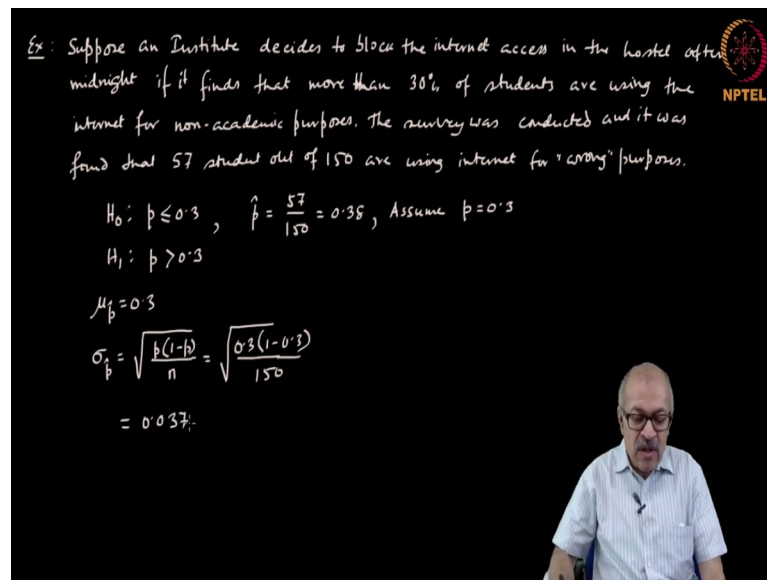 Ex: Suppose an Institute decides to block the internet access in the hostel after
NPTEL
midnight if it finds that more than 30% of students are using the
internet for non-academic purposes. The survey was conducted and it was
found that 57 student out of 150 are using internet for "wrong" purposes.
H₀: p ≤ 0.3 , p̂ = 57/150 = 0.38, Assume p = 0.3
H₁: p > 0.3
μ_p̂ = 0.3
σ_p̂ = √(p(1-p)/n) = √(0.3(1-0.3)/150)
= 0.037